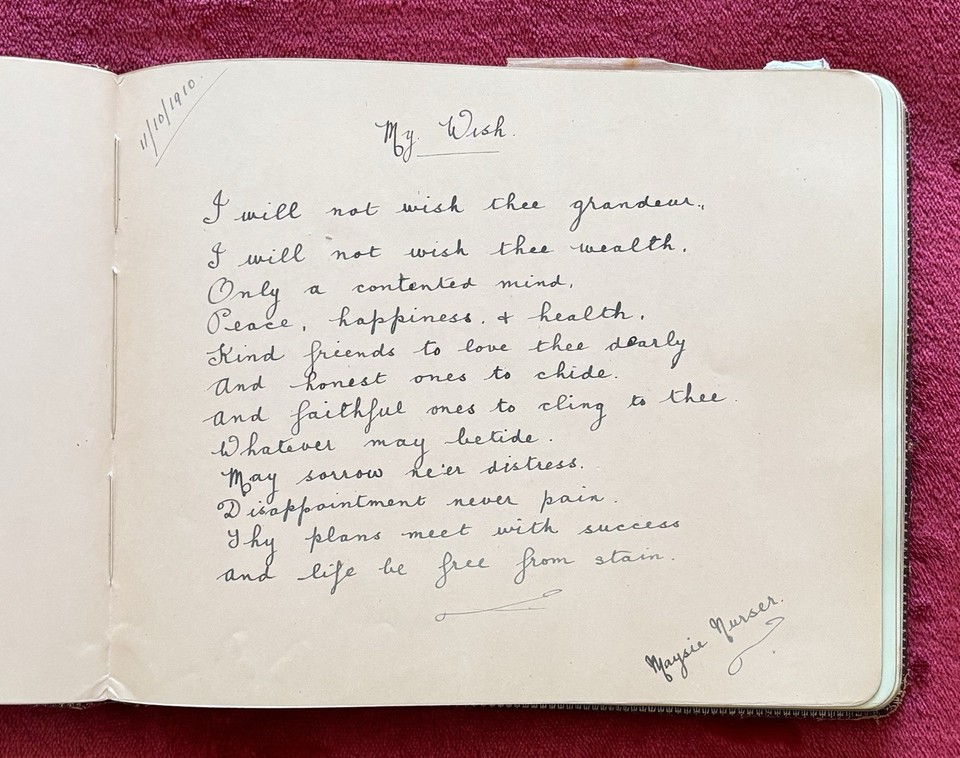 11/10/1910.
My Wish.
I will not wish thee grandeur.,
I will not wish thee wealth.
Only a contented mind.
Peace, happiness. & health.
Kind friends to love thee dearly
And honest ones to chide.
And faithful ones to cling to thee.
Whatever may betide.
May sorrow ne'er distress.
Disappointment never pain.
Thy plans meet with success
And life be free from stain.
Maysie Nurser.